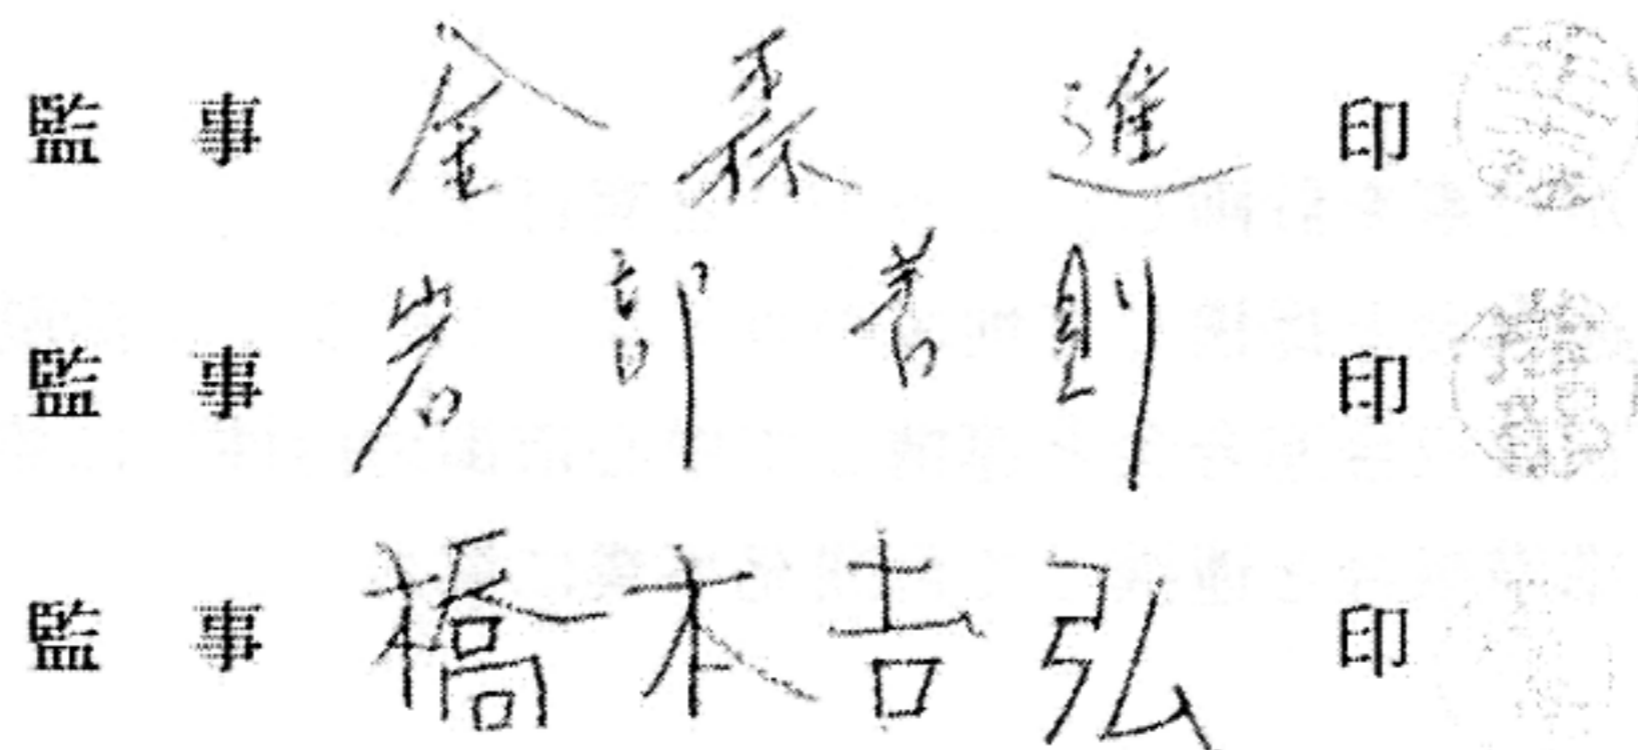 監事 金森 進 印
監事 岩部 善則 印
監事 橋本吉弘 印